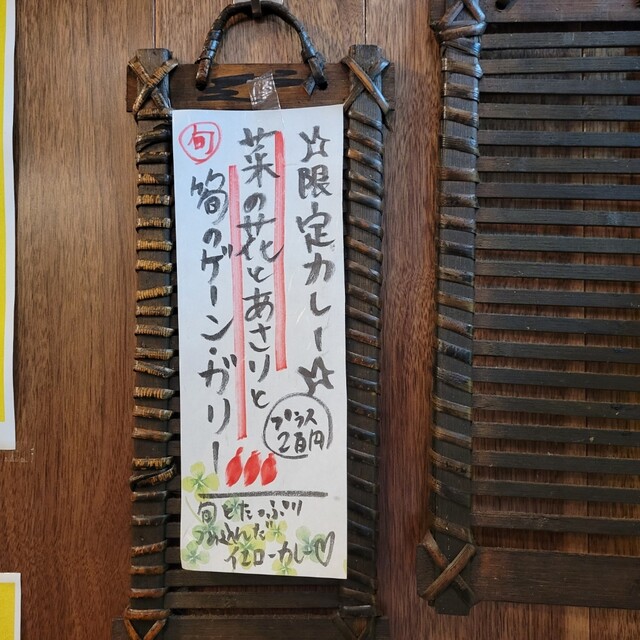 ☆限定カレー☆
菜の花とあさりと
旬
筍のゲーン・ガリー
プラス
2百円
旬をたっぷり
つめ込んだ
イエローカレー♡